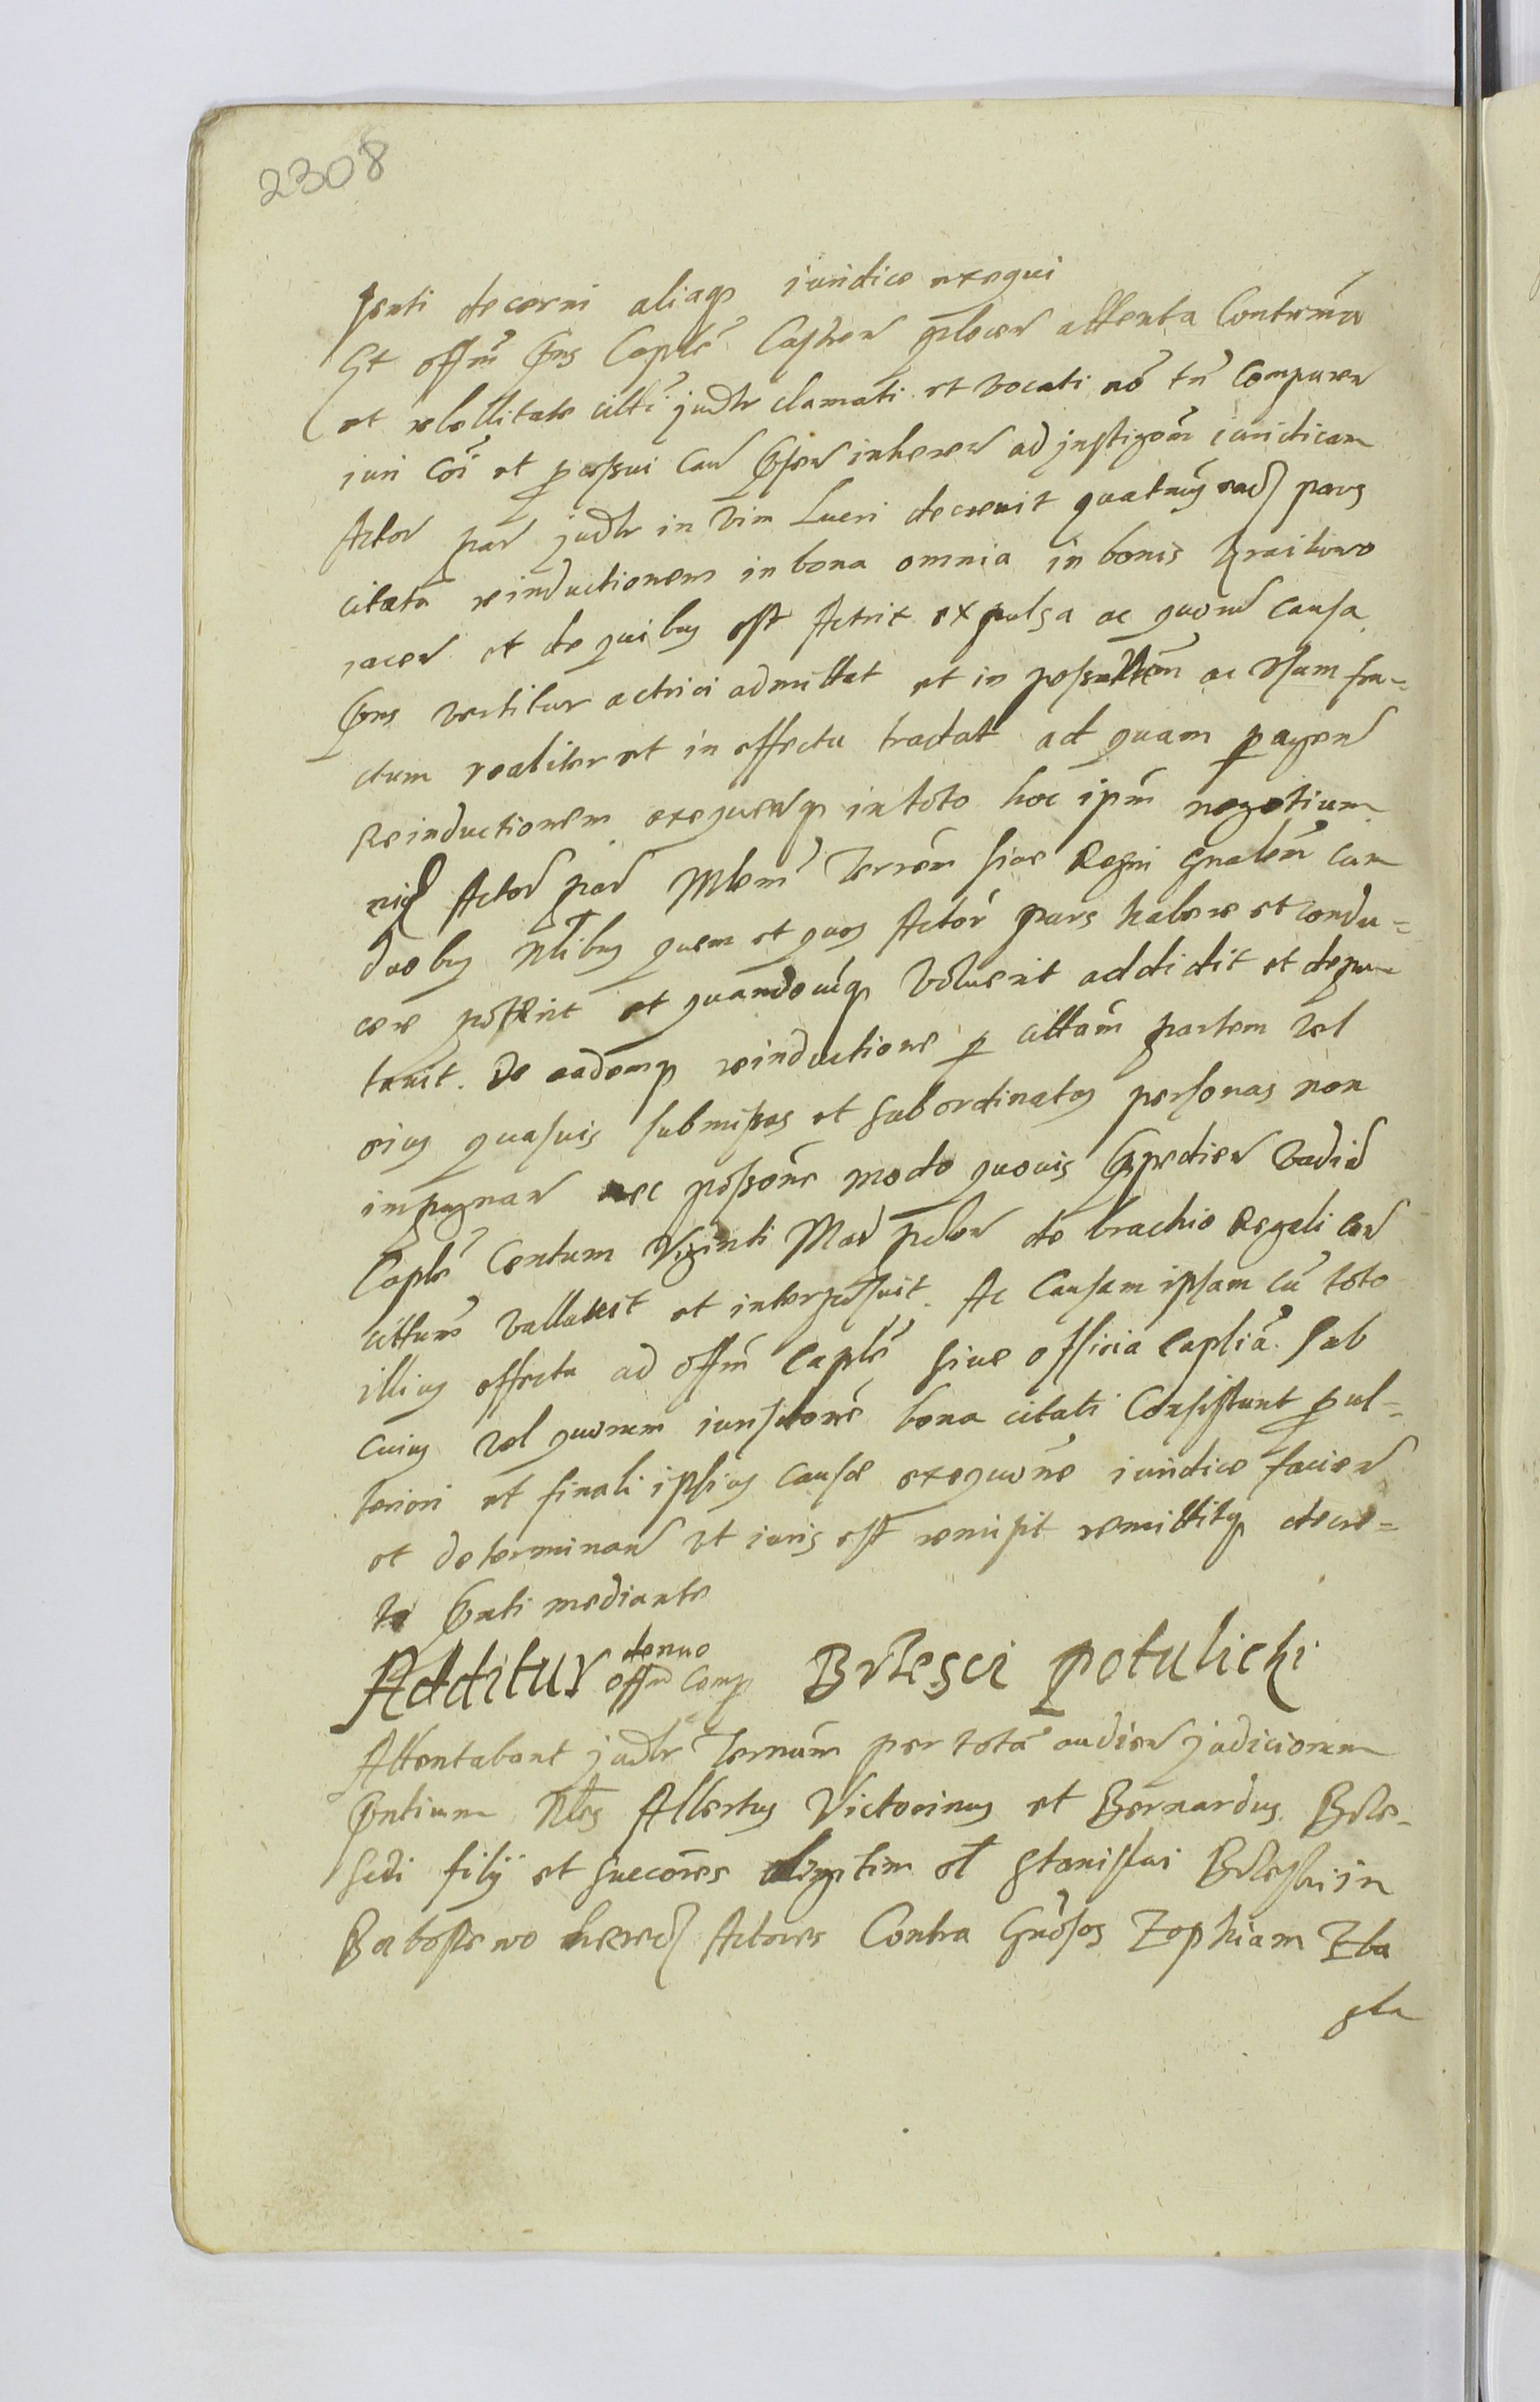 2308
senti decerni aliaq3 iuridice exequi
Et offm pns Caple Castren attenta Contuma
et rebellitate citti judtr clamati et vocati no tn comparen
iuri coi et processui cau pnsen inheren ad instigaom iuridicam
Actor par judtr in vim Lucri decrevit quatenus ead pars
citata reinductionem in bona omnia in bonis
jacen et de quibus est Actrix expulsa ac quorum causa
pns vertitur actrici admittat et in possessiom ac usum fru=
ctum realiter et in effectu tradat ad quam peragen
Reinductionem exequenq3 in toto hoc ipm negotium
eid Actor par Mlem Terrem sive Regni Gnalem cum
duobus Nlibus quem et quos Actor pars habere et condu=
cere poterit et quandocuq3 voluerit addidit et depu
tavit. De eademq3 reinductione p cittam partem vel
eius quasuis submissas et subordinatas personas non
impugnan nec possone modo quovis Impedien vadiu
Caple Centum Viginti Mar pclen de brachio Regali con
cittum vallavit et interposuit. Ac Causam ipsam cu toto
illius effectu ad offm Caple sive officia Caplia. sub
cuius vel quorum iurisdione bona citati Consistunt p ul=
teriori et finali ipsius causae exequone iuridice facien
et determinan ut iuris est remisit remittitq3 decre=
to pnti mediante
Additur denuo offm Comp Brzesci Potulicki
Attentabant judtr Ternum per tota audien judiciorum
pntium Nles Albertus Victorinus et Bernardus Brze-
scii filij et succores olim Stanislai Brzeski in
Babostewo hered Actores Contra Gnosos Zophiam Zba